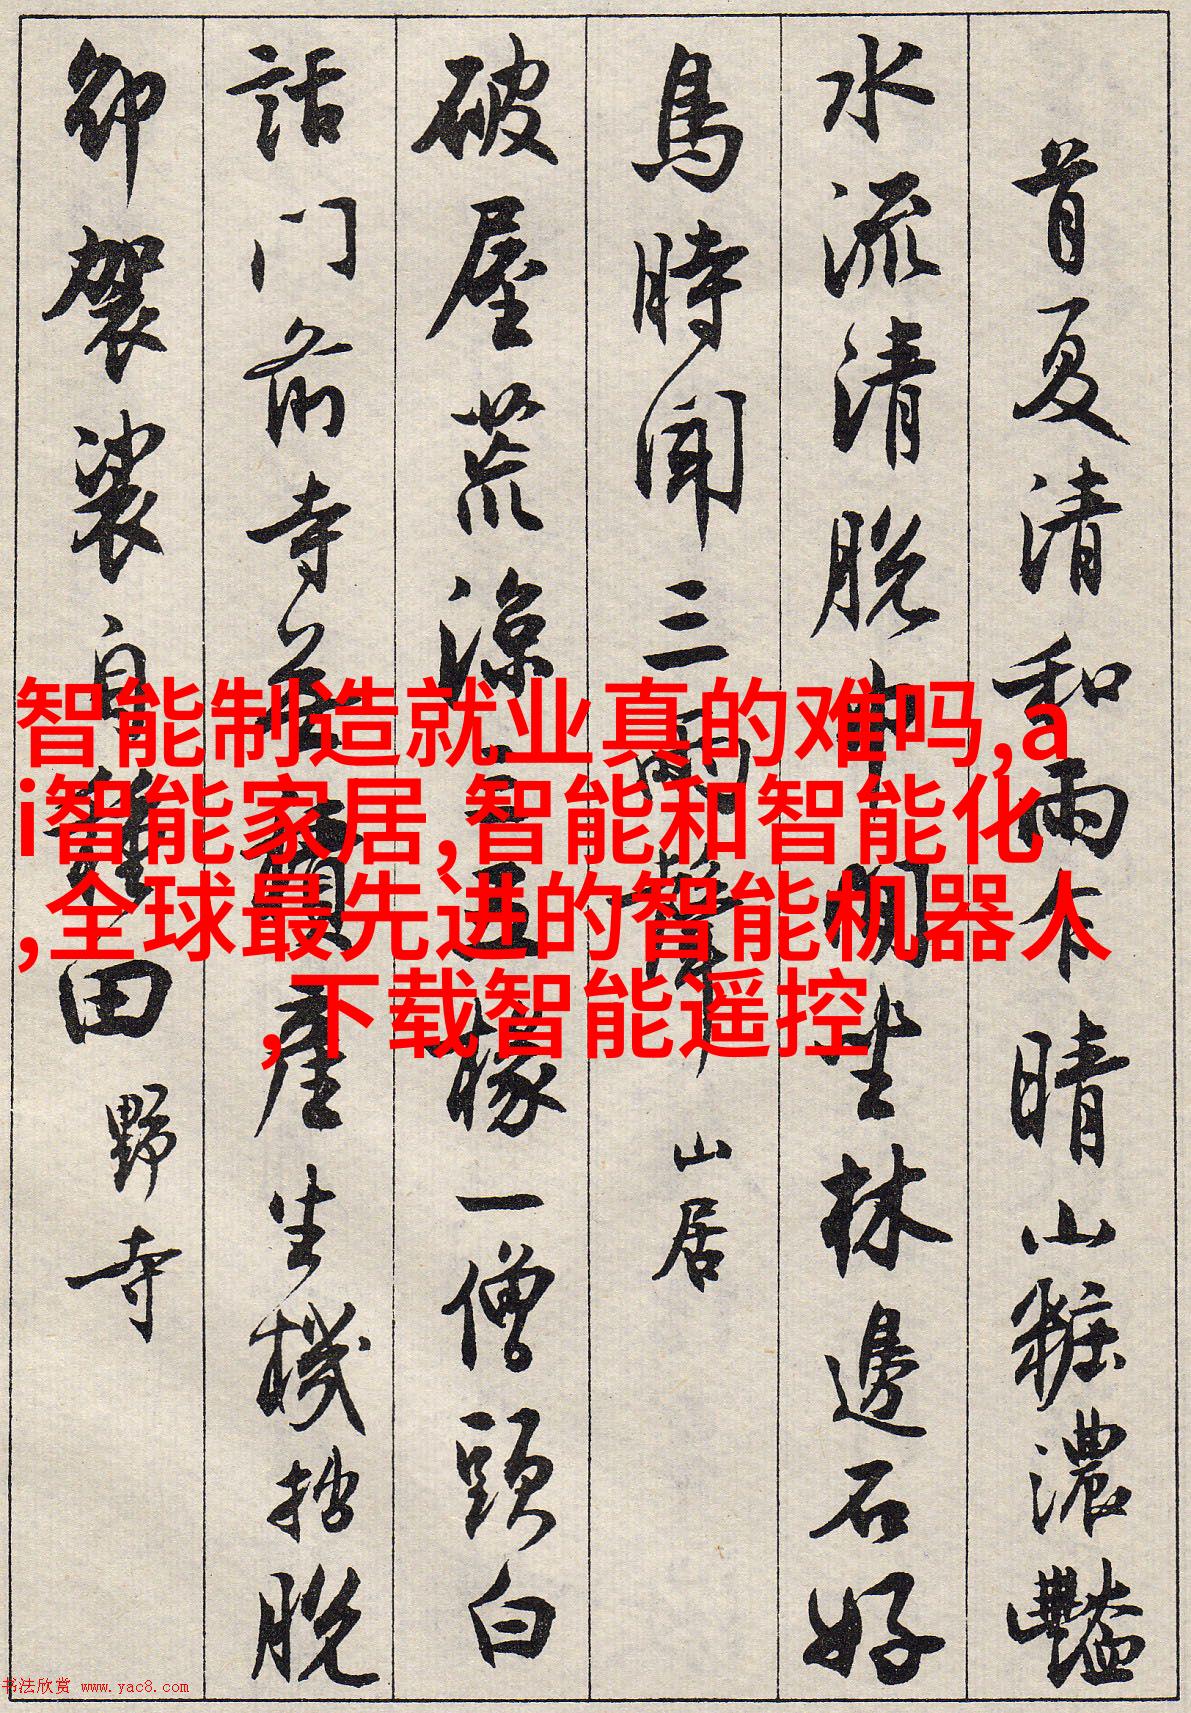 首夏清和雨乍晴山粧濃豔
水流清脱巾閒坐林邊石好
鳥時聞三兩聲 山居
破屋荒涼五椽一僧頭白
話门前寺產生機拙脱
卻袈裟自種田 野寺
智能制造就业真的难吗,a
i智能家居,智能和智能化
,全球最先进的智能机器人
,下载智能遥控
书法欣赏 www.yac8.com